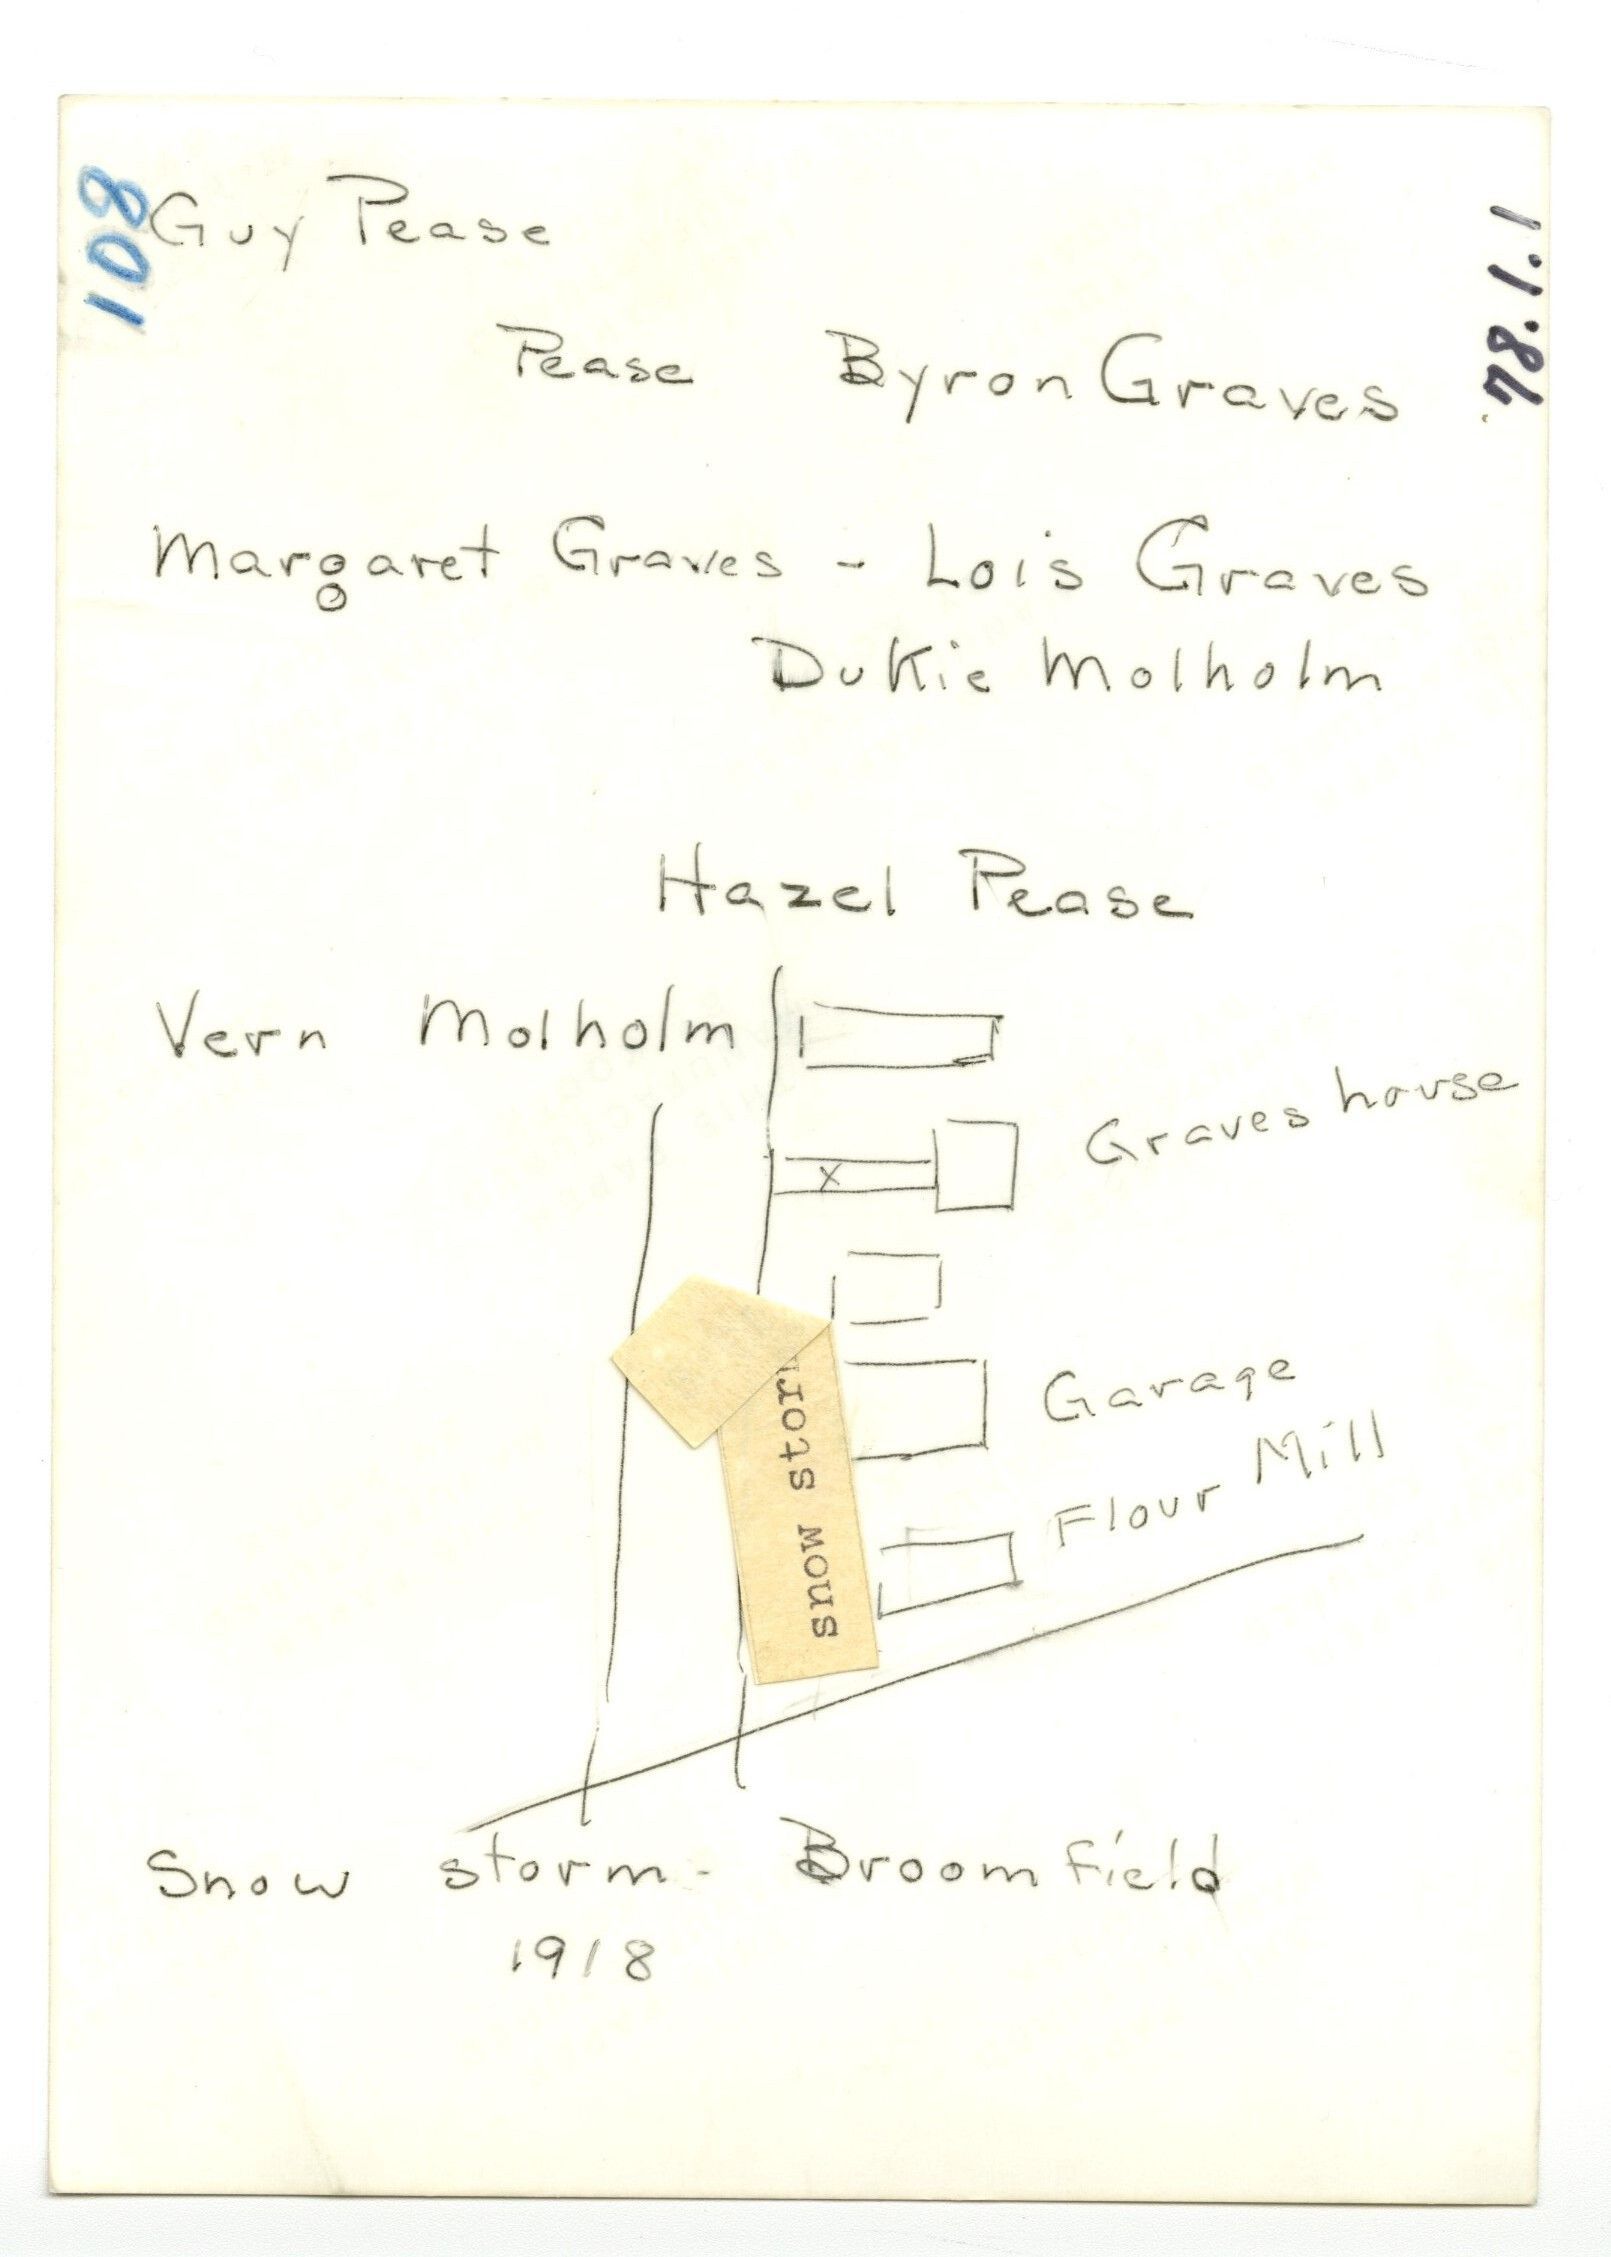 108
Guy Pease
1.1.87
Pease Byron Graves
Margaret Graves - Lois Graves
Dukie Molholm
Hazel Pease
Vern Molholm
Graves house
X
Garage
Flour Mill
snow stor
Snow storm - Broomfield
1918